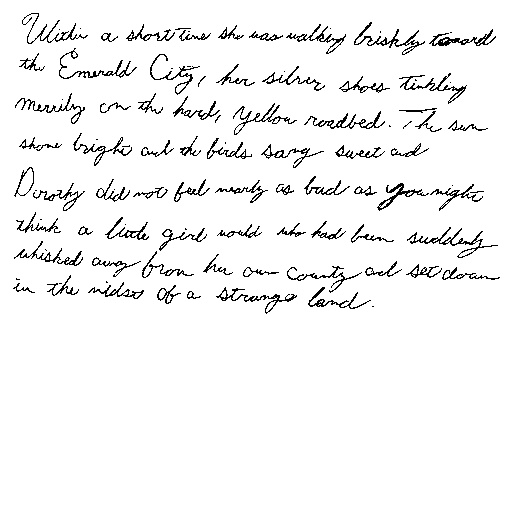 Within a short time she was walking briskly toward
the Emerald City, her silver shoes tinkling
merrily on the hard, yellow roadbed. The sun
shone bright and the birds sang sweet and
Dorothy did not feel nearly as bad as you might
think a little girl would who had been suddenly
whisked away from her own country and set down
in the midst of a strange land.